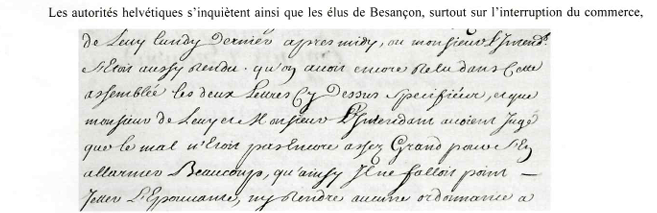 Les autorités helvétiques s'inquiètent ainsi que les élus de Besançon, surtout sur l'interruption du commerce,
de Levy lundy dernier apres midy, ou monsieur L'Intend.t
s'Etoit aussy Rendu. qu'on avoit encore Relu dans Cette
assemblée les deux Lettres Cy Dessus specifiées, et que
monsieur de Levy et Monsieur L'Intendant avoient Jugé
que le mal n'Etoit pas Encore assez Grand pour s'En
allarmer Beaucoup, qu'ainsy Il ne falloit point —
Jetter L'Epouvante, ny Rendre aucune ordonnance a